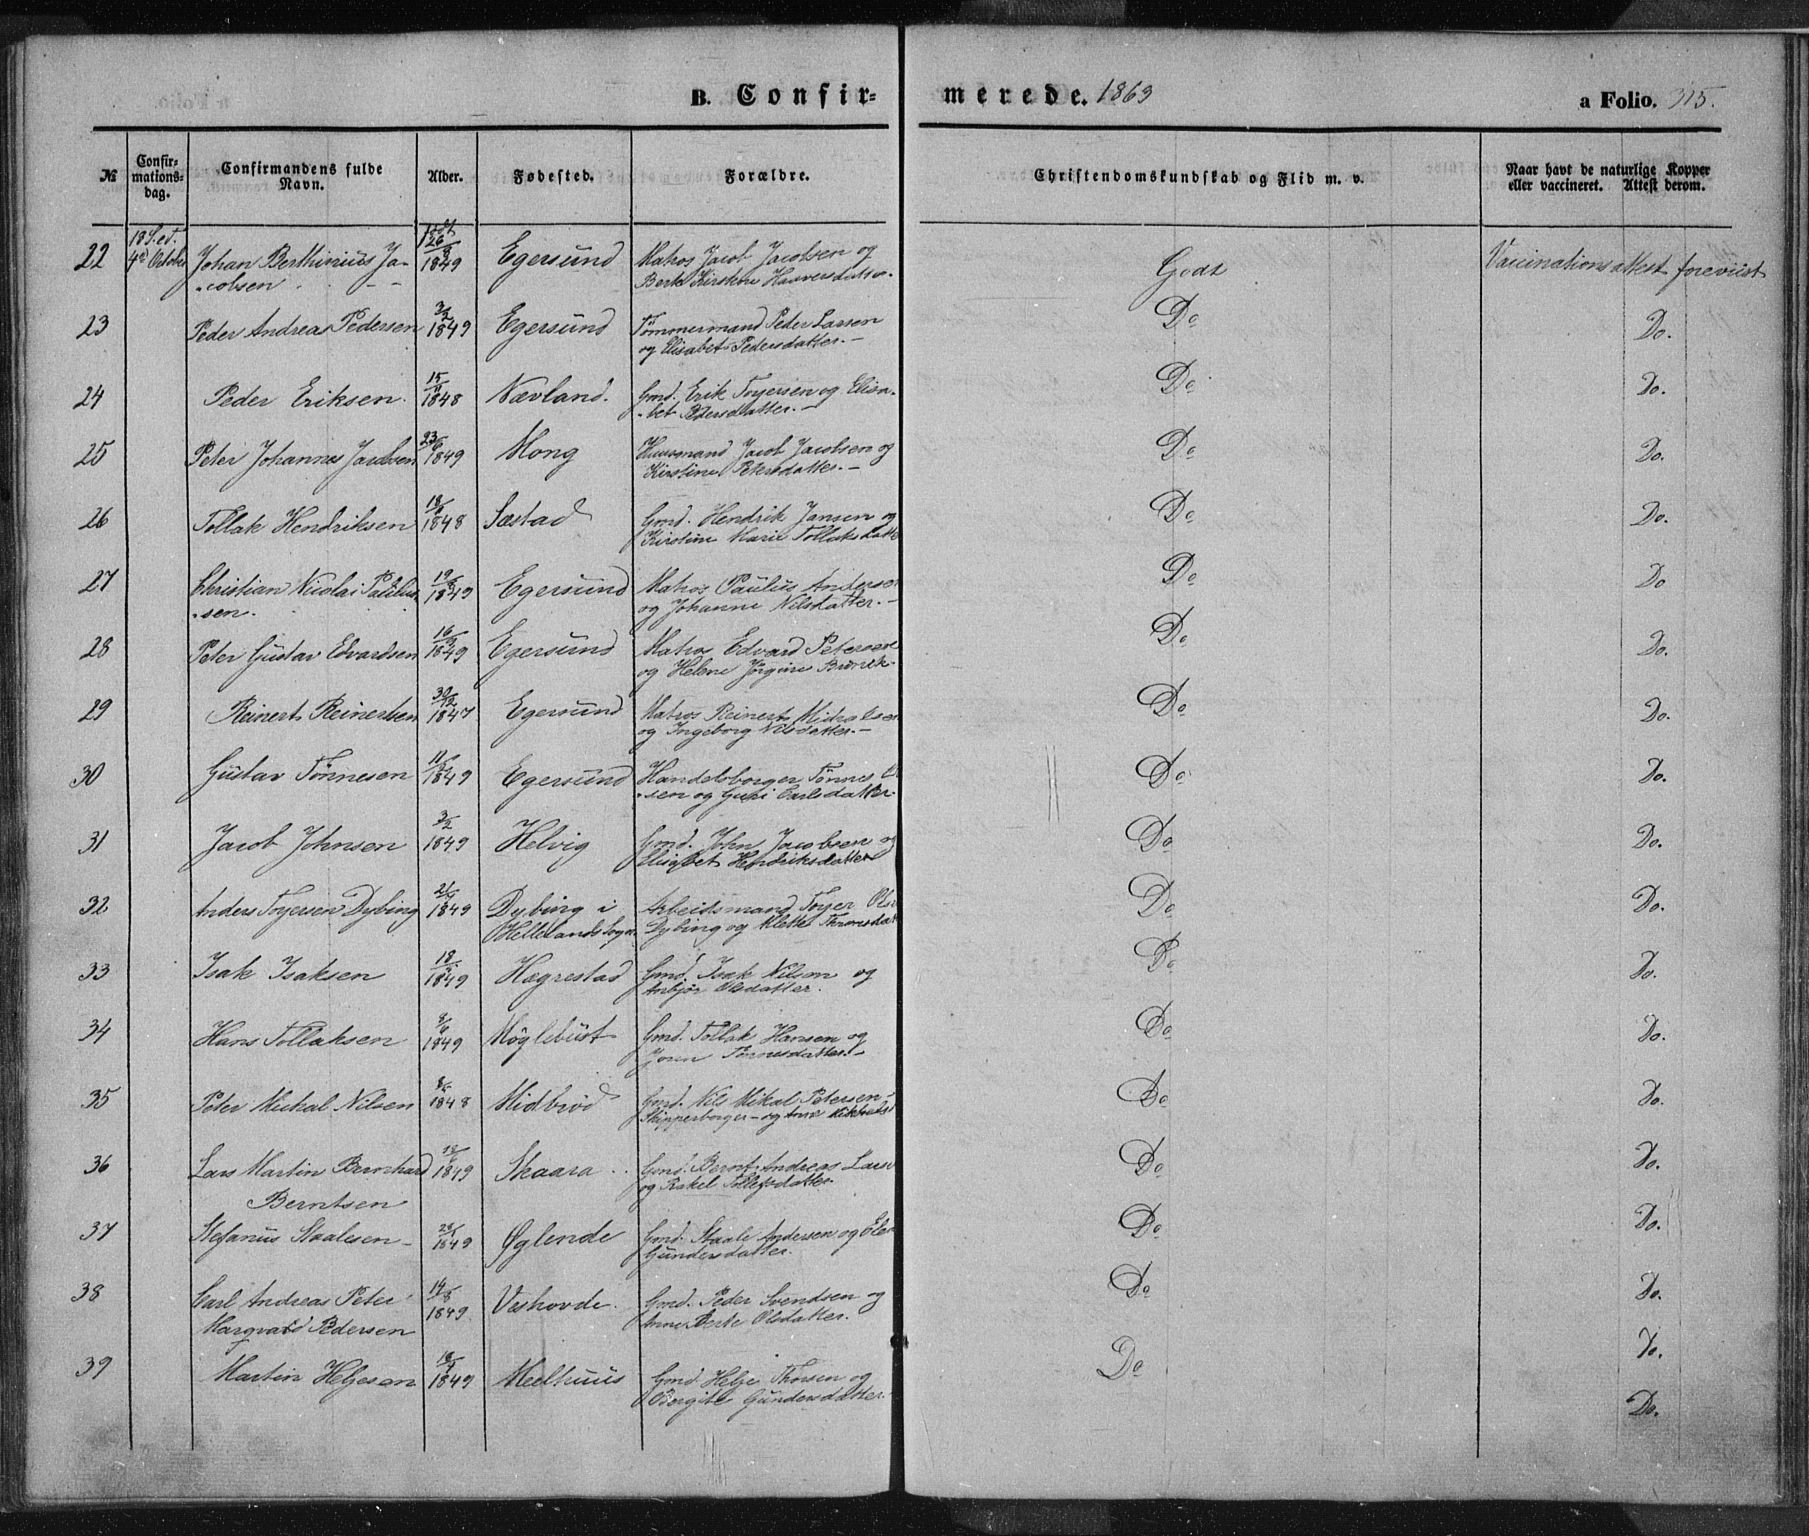 B. Confir-
merede. 1863
a Folio. 315.
№
Confir-
mations-
dag.
Confirmandens fulde
Navn.
Alder.
Fødested.
Forældre.
Christendomskundskab og Flid m. v.
Naar havt de naturlige Kopper
eller vaccineret. Attest derom.
22 4de October Johan Berthinius Ja- 1849 Egersund Matros Jacob Jacobsen og Godt Vaccinationsattest foreviist
-cobsen Berte Kirstine
23 Peder Andreas Pedersen 3/2 1849 Egersund Tømmermand Peder Larsen Do Do.
og Elisabet Pedersdatter.-
24 Peder Eriksen. 15/11 1848 Nævland. Gmd. Erik Tojersen og Elisa- Do. Do.
-bet Pedersdatter.-
25 Peter Johannes Jacobsen 1849 Mong Huusmand Jacob Jacobsen og Do Do.
Kirstine Petersdatter.-
26 Tollak Hendriksen 1848 Sæstad Gmd. Hendrik Jansen og Do Do.
Kirstine Marie Tollaks
27 Christian Nicolai Paulus- 1849 Egersund Matros Paulus Anderse Do Do
-sen. og Johanne Nilsdatter.-
28 Peter Gustav Edvardsen 1849 Egersund Matros Edvard Peterse Do Do.
og Helene Jørgine
29 Reinert Reinertsen 30/12 1847 Egersund Matros Reinert Do Do.
og Ingeborg Nilsdatter.-
30 Gustav Tønnesen 1849 Egersund Handelsborger Tønnes Ol Do Do.
-sen og Guri Carlsdatter
31 Jacob Johnsen 3/2 1849 Helvig Gmd. John Jacobsen og Do Do.
Elisabet Hendriksdatter
32 Anders Tojersen Dybing 1849 Dybing i Arbeidsmand Tojer Ols Do Do.
Hellelands Sogn Dybing og Mette
33 Isak Isaksen 1849 Hægrestad Gmd. Isak Nilsen og Do Do.
Anbjør Olsdatter.
34 Hans Tollaksen 1849 Møglebust Gmd. Tollak Hansen og Do Do.
Joren Tønnesdatter.-
35 Peter Mickal Nilsen 1848 Midbrød Gmd. Nils Mikal Petersen- Do Do.
Skipperborger-og Ane
36 Lars Martin Bernhard 1849 Skaara Gmd. Bernt Andreas Lars Do Do.
Berntsen og Rakel Tollefsdatter.
37 Stefanus Staalesen- 1849 Øglende Gmd. Staale Andersen og Ele Do Do.
Gundersdatter.
38 Carl Andreas Peter 14/8 1849. Veshovde. Gmd. Peder Svendsen og Do Do.
Marqvard Pedersen Anne Berte Olsdatter.
Do.
39 Martin Helgesen 1849 Meelhuus Gmd Helje Thorsen og Do
Borgite Gundersdatter.
Do.